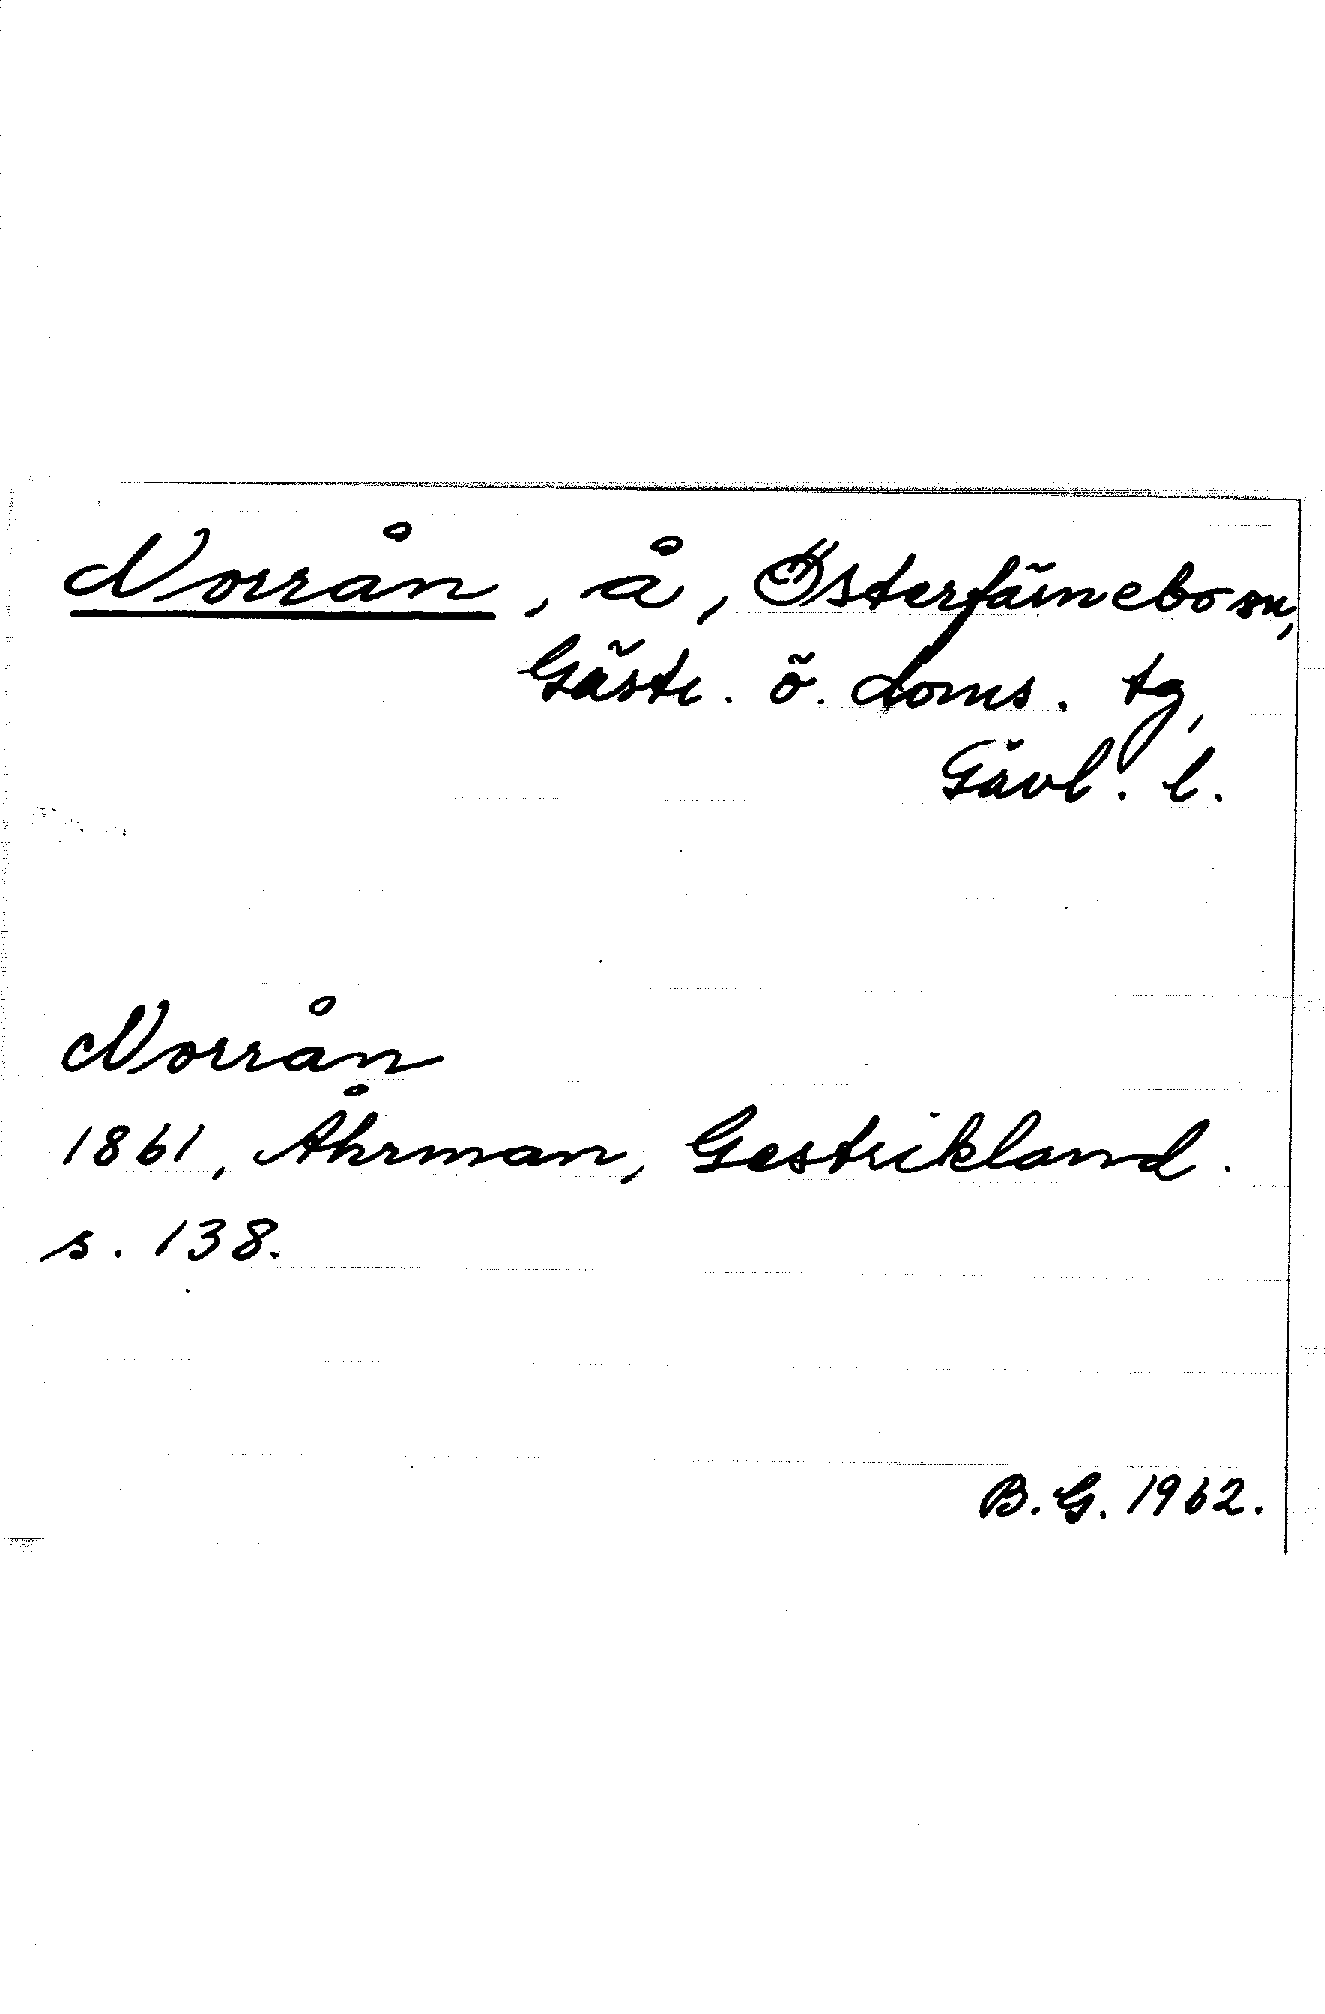 Norrån, å, Österfärnebo sn,
Gästr. ö. doms. tg,
Gävl. l.
Norrån
1861, Åhrman, Gestrikland.
s. 138.
B.G. 1962.